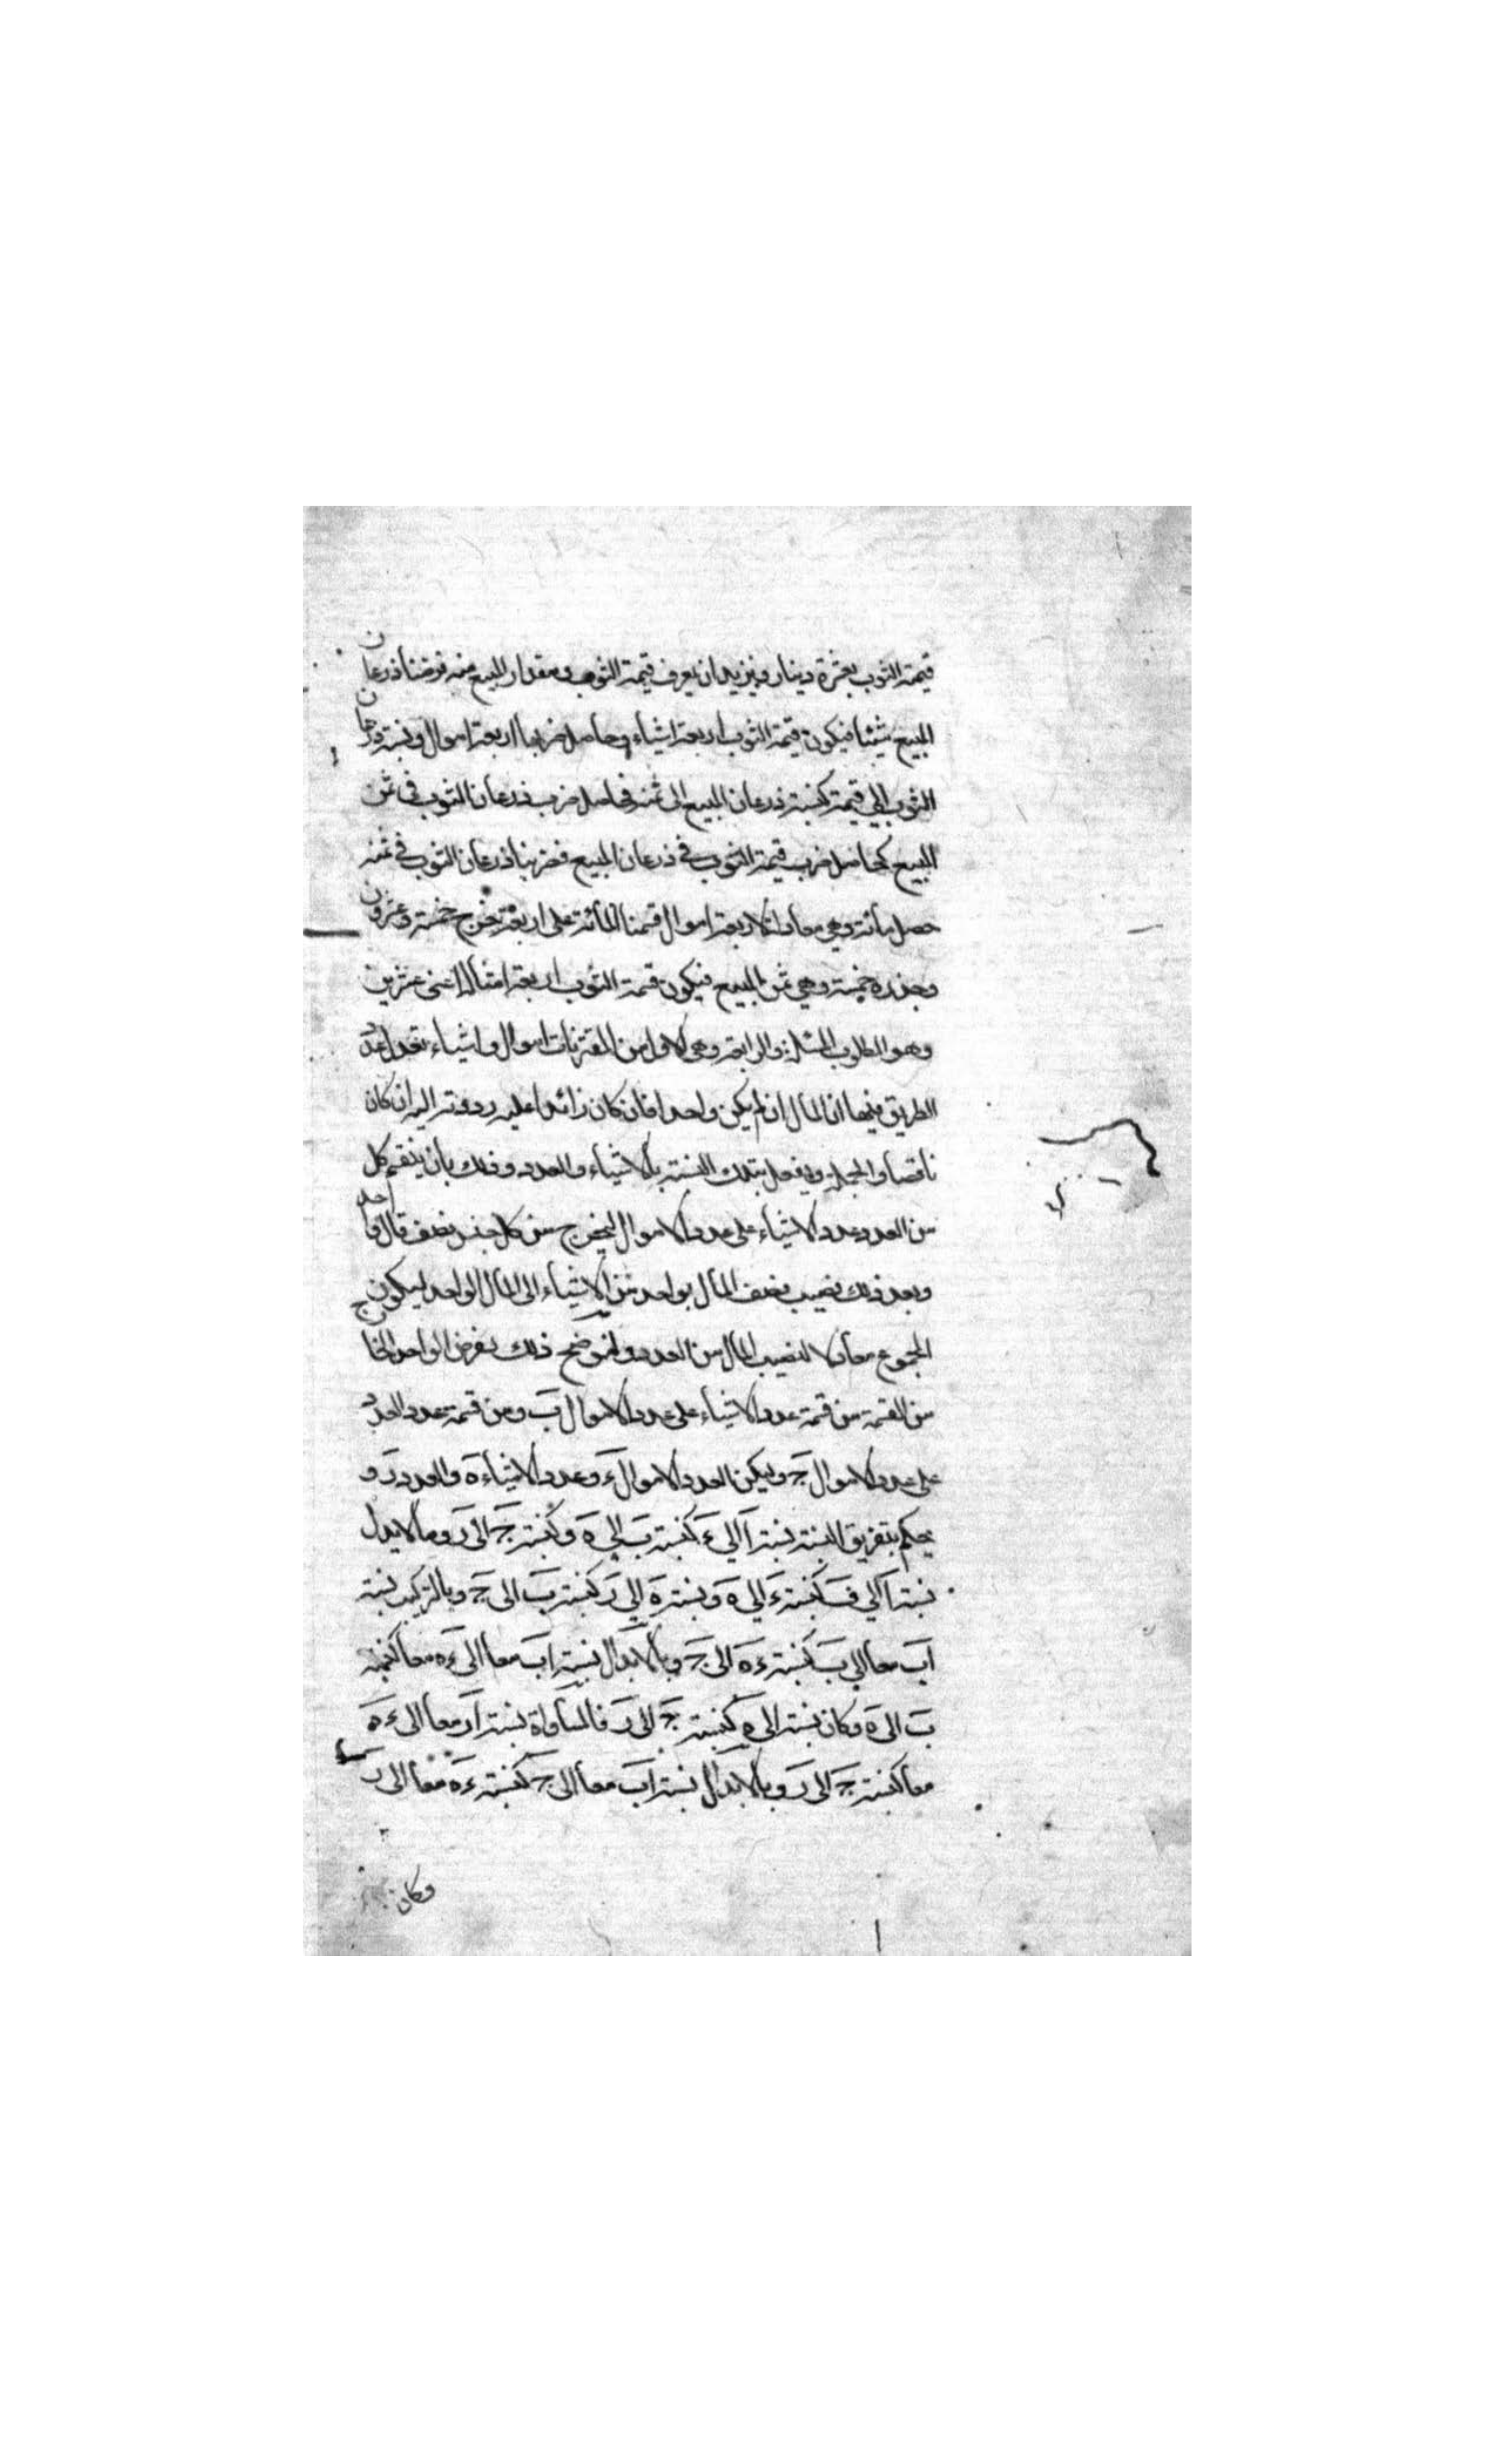 قيمة الثوب بعشرة دينار ونريد ان يعرف قيمة الثوب ومقدار المبيع منه فرضنا ذرعان
المبيع شيئا فيكون قيمة الثوب اربعة اشياء وحاصل ضربها اربعة اموال ونسبة ذرعان
الثوب الى قيمة كنسبة ذرعان المبيع الى ثمنه فحاصل ضرب ذرعان الثوب في ثمن
المبيع كحاصل ضرب قيمة الثوب في ذرعان المبيع فضربنا ذرعان الثوب في ثمنه
حصل مائة وهي معادلة لاربعة اموال قسمنا المائة على اربعة خرج خمسة وعشرون
وجذره خمسة وهي ثمن المبيع فيكون قيمة الثوب اربعة امثالها اعني عشرين
وهو المطلوب المسئلة الرابعة وهي الاولى من المقترنات اموال واشياء تعدل عدد
الطريق فيها ان المال ان لم يكن واحدا فان كان زائدا عليه رددته اليه ان كان
ناقصا والجملة ويفعل بتلك النسبة بالاشياء والعدد وذلك بان ينقسم كل
من العدد وعدد الاشياء على عدد الاموال ليخرج من كل جنس نصف مال واحد
وبعد ذلك نصيب نصف المال بواحد من الاشياء الى المال الواحد ليكون
المجموع معادلا لنصيب المال من العدد ولنوضح ذلك نفرض الواحد الخارج
من القسمة من قسمة عدد الاشياء على عدد الاموال ب ومن قسمة عدد العدد
على عدد الاموال ج وليكن العدد الاموال ء وعدد الاشياء ه والعدد ر و
يحكم بتفريق النسبة نسبة ا الى ء كنسبة ب الى ه وكنسبة ج الى ر وبالابدال
نسبة ا الى ب كنسبة ء الى ه ونسبة ه الى ر كنسبة ب الى ج وبالتركيب نسبة
اب معا الى ب كنسبة ء ه الى ج وبالابدال نسبة اب معا الى ء ه معا كنسبة
ب الى ه وكان نسبة الى ه كنسبة ج الى ر فالمساواة نسبة ار معا الى ء ه
معا كنسبة ج الى ر وبالابدال نسبة اب معا الى ج كنسبة ء ه معا الى ر
وكان